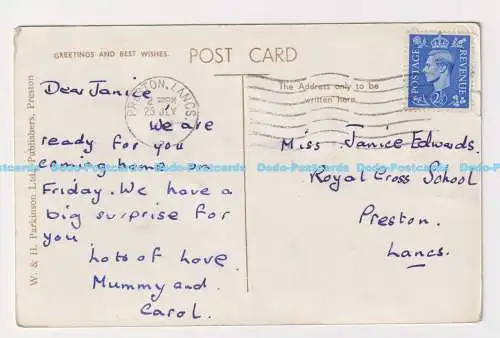 GREETINGS AND BEST WISHES.
POST CARD
W. & H. Parkinson Ltd., Publishers, Preston
Dear Janice
We are
ready for you
coming home on
Friday. We have a
big surprise for
you
Lots of love
Mummy and
Carol.
PRESTON, LANCS.
23 JLY
The Address only to be
written here.
POSTAGE
REVENUE
2½D
Miss Janice Edwards.
Royal Cross School
Preston.
Lancs.
Dodo-Postcards